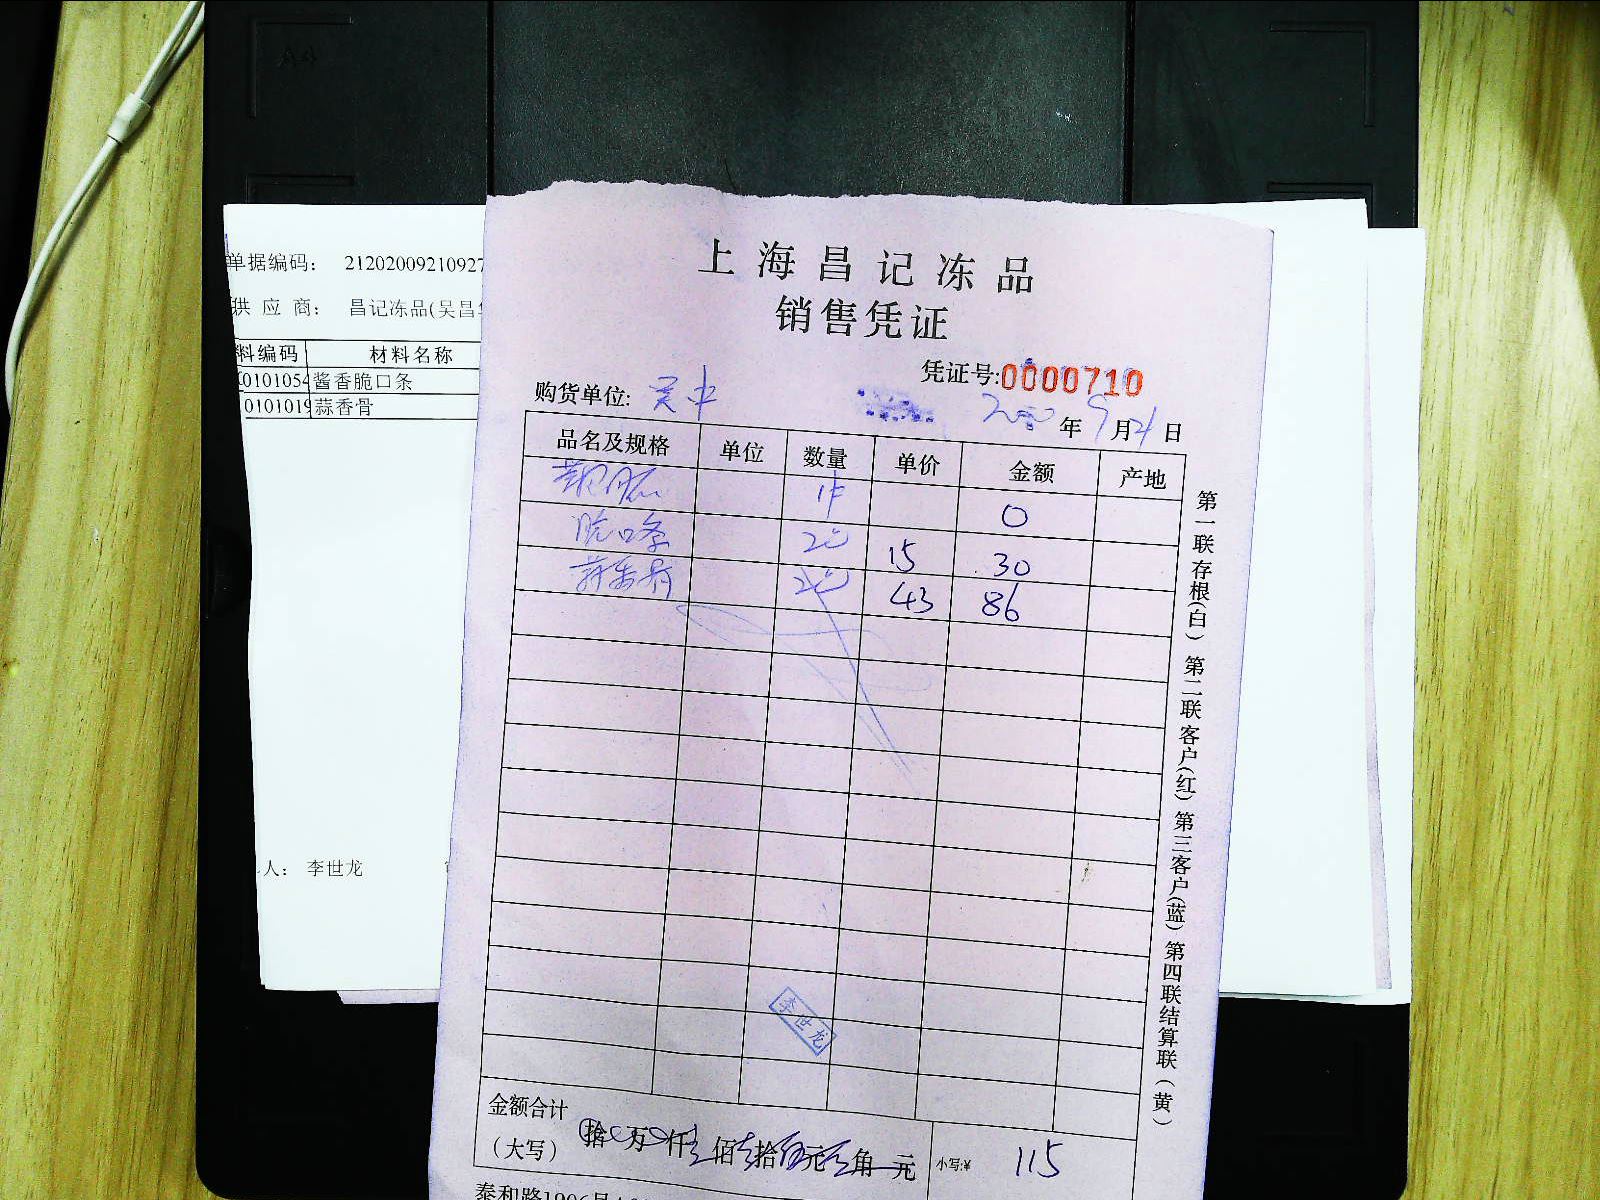 A4
单据编码： 2120200921092
供 应 商： 昌记冻品(吴昌
料编码 材料名称
0101054 酱香脆口条
0101019 蒜香骨
人： 李世龙
上海昌记冻品
销售凭证
凭证号:0000710
购货单位: 吴中
年 9月21日
品名及规格 单位 数量 单价 金额 产地
1件 0
脆口条 2包 15 30
蒜香骨 2包 43 86
李世龙
金额合计
（大写） 拾 万 仟 佰 拾 元 角 元 小写:¥ 115
泰和路1906号
第一联存根(白) 第二联客户(红) 第三客户(蓝) 第四联结算联(黄)